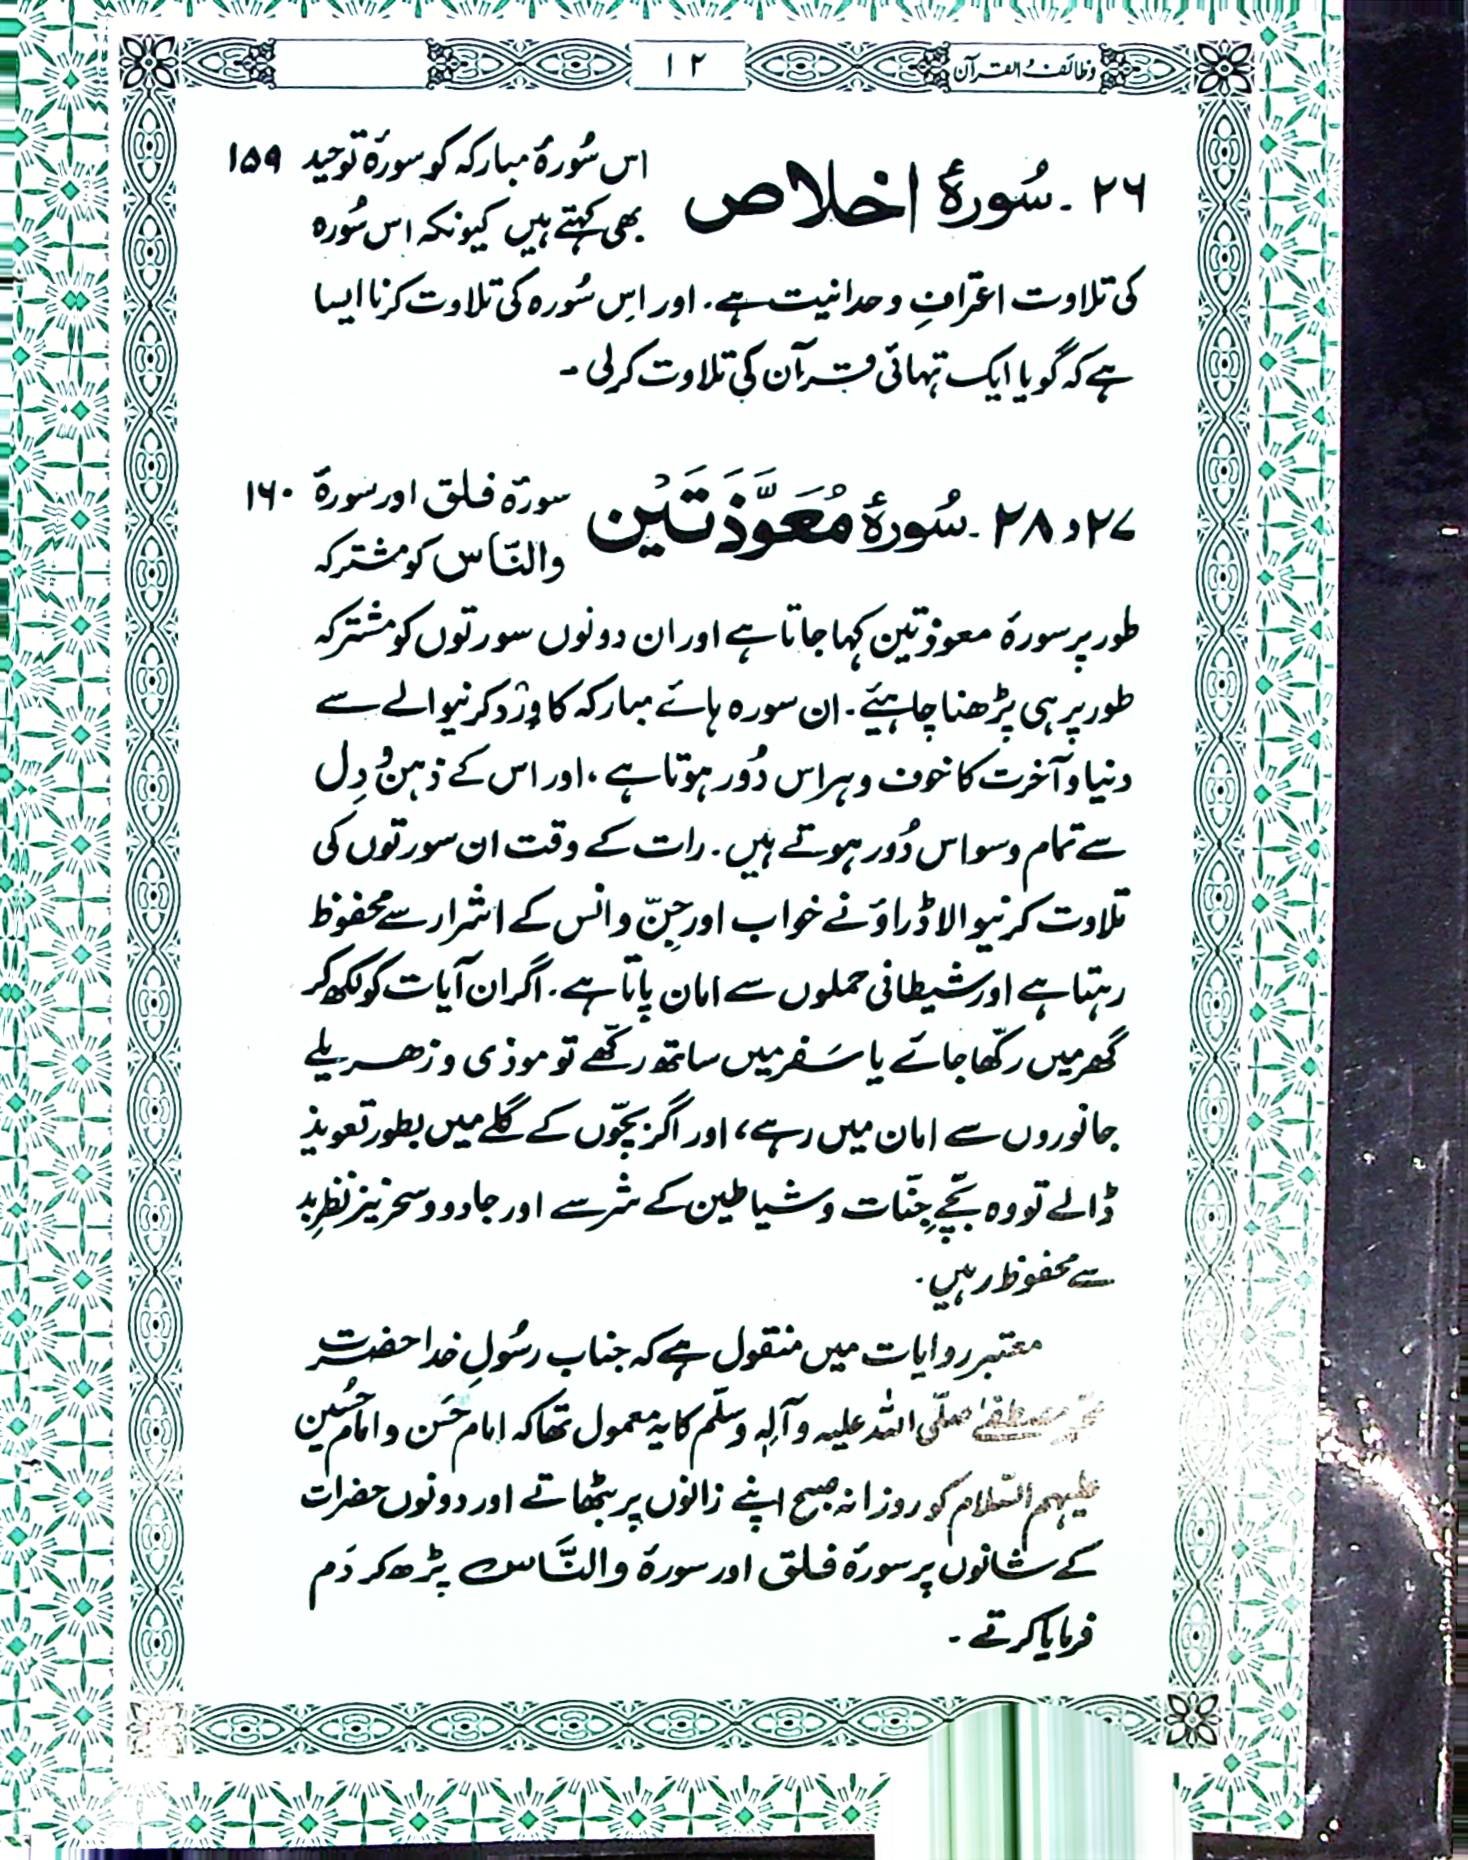 وظائف القرآن
۱۲
۲۶ ۔ سُورۂ اخلاص اس سُورۂ مبارکہ کو سورۂ توحید ۱۵۹
بھی کہتے ہیں کیونکہ اس سُورہ
کی تلاوت اعترافِ وحدانیت ہے۔ اور اِس سُورہ کی تلاوت کرنا ایسا
ہے کہ گویا ایک تہائی قرآن کی تلاوت کرلی ۔
۲۷ و ۲۸ ۔ سُورۂ مُعَوَّذَتَیْن سورۂ فلق اور سورۂ ۱۶۰
والنّاس کو مشترکہ
طور پر سورۂ معوذتین کہا جاتا ہے اور ان دونوں سورتوں کو مشترکہ
طور پر ہی پڑھنا چاہیئے۔ ان سورہ ہائے مبارکہ کا وِرْد کرنیوالے سے
دنیا و آخرت کا خوف و ہراس دُور ہوتا ہے، اور اس کے ذہن و دِل
سے تمام وسواس دُور ہوتے ہیں۔ رات کے وقت ان سورتوں کی
تلاوت کرنیوالا ڈراؤنے خواب اور جِنّ و انس کے اشرار سے محفوظ
رہتا ہے اور شیطانی حملوں سے امان پاتا ہے۔ اگر ان آیات کو لکھ کر
گھر میں رکّھا جائے یا سَفر میں ساتھ رکّھے تو موذی و زہریلے
جانوروں سے امان میں رہے، اور اگر بچّوں کے گلے میں بطور تعویذ
ڈالے تو وہ بچّے جِنّات و شیاطین کے شر سے اور جادو و سحر نیز نظرِ بد
سے محفوظ رہیں۔
معتبر روایات میں منقول ہے کہ جناب رسُولِ خدا حضرت
محمّد مصطفےٰ صلّی اللہ علیہ و آلِہٖ وسلّم کا یہ معمول تھا کہ امام حَسَن و امام حُسین
علیہم السّلام کو روزانہ صبح اپنے زانوں پر بٹھاتے اور دونوں حضرات
کے شانوں پر سورۂ فلق اور سورۂ والنَّاس پڑھ کر دَم
فرمایا کرتے ۔